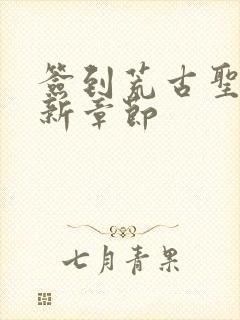 簽到荒古聖
新章節
七月青果